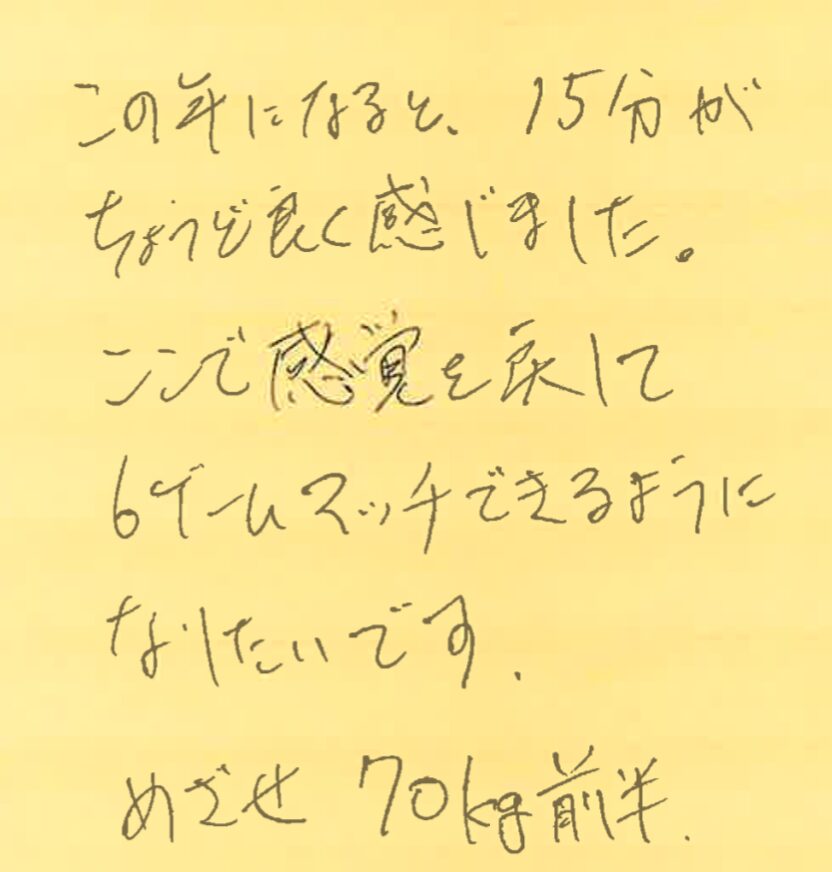 この年になると、15分が
ちょうど良く感じました。
ここで感覚を戻して
6ゲームマッチできるように
なりたいです.
めざせ 70kg前半.